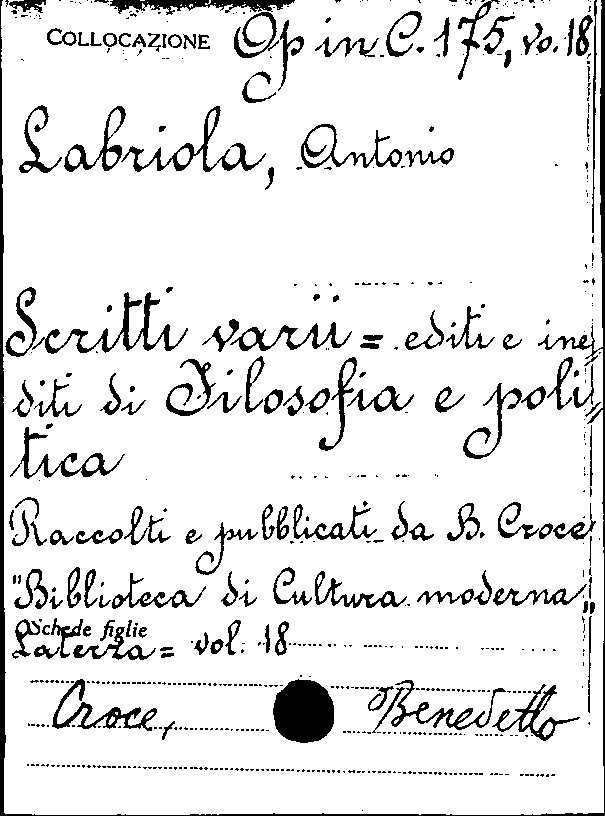 COLLOCAZIONE Op in C. 175, vo. 18
Labriola, Antonio
Scritti varii = editi e ine
diti di Filosofia e poli
tica
Raccolti e pubblicati da B. Croce
"Biblioteca di Cultura moderna„
Schede figlie
Laterza = vol. 18
Croce, Benedetto